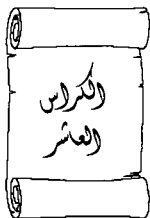 الكراس
العاشر